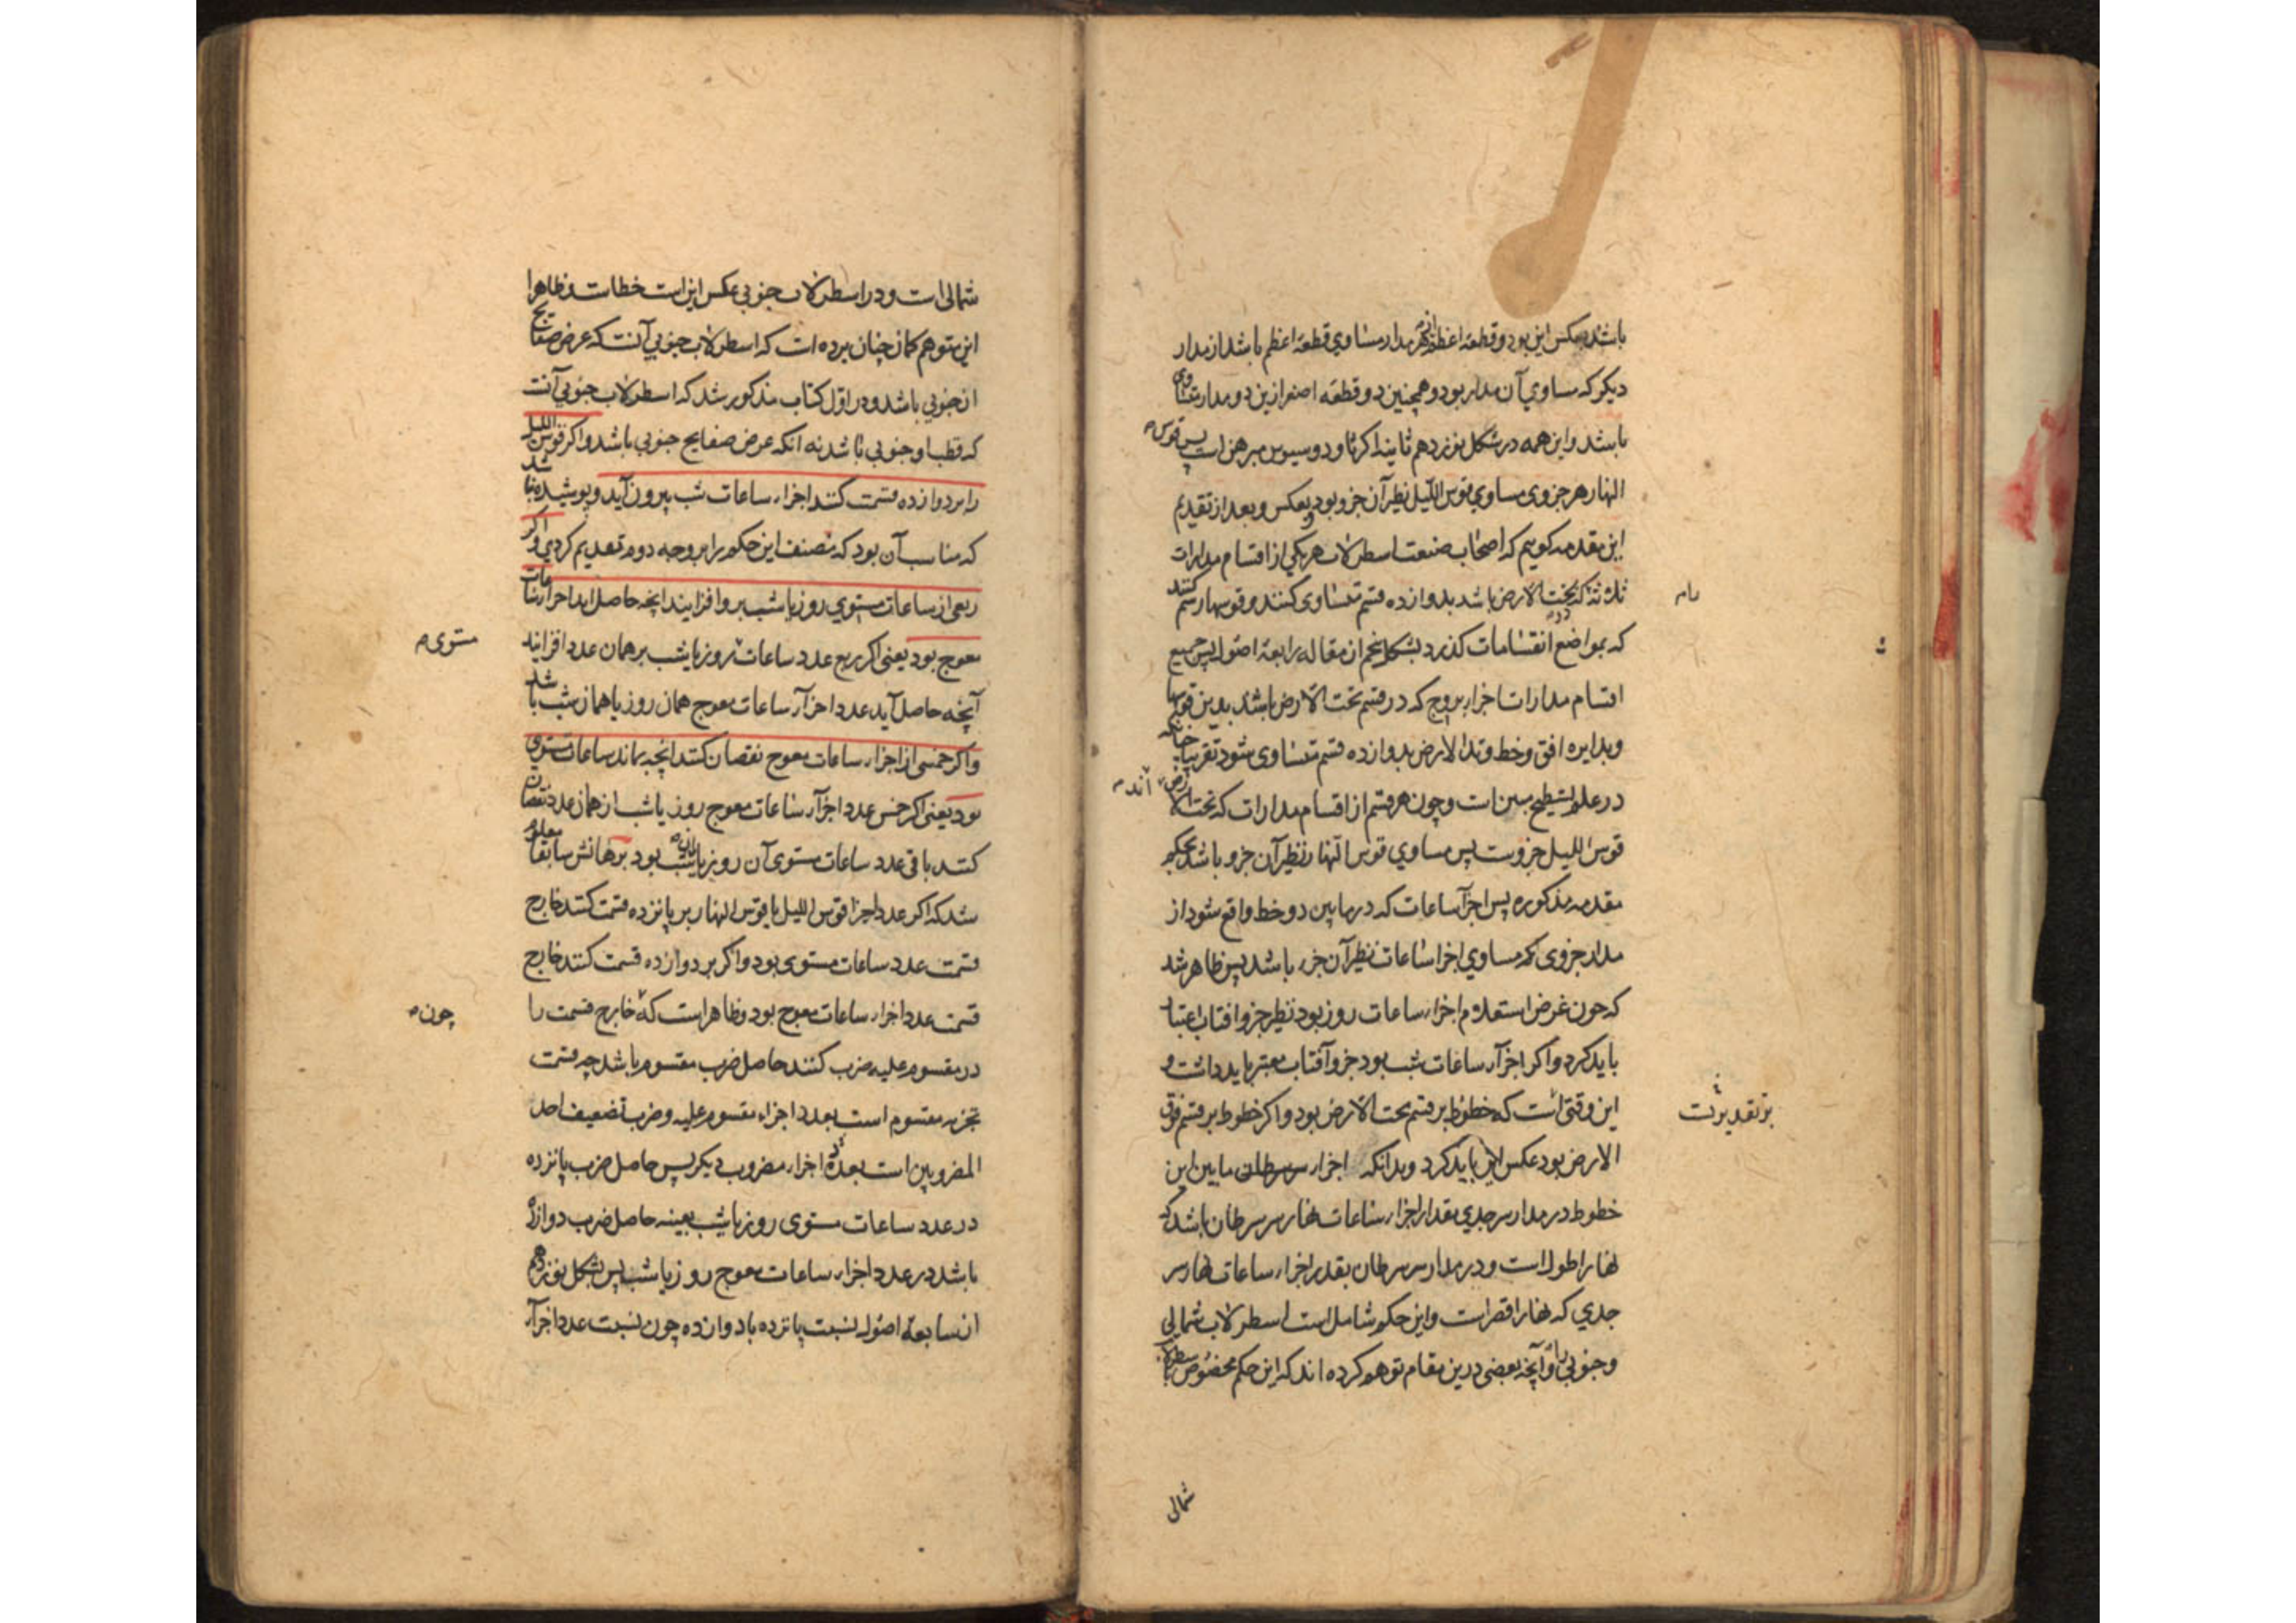 باشد و عکس این بود و قطعه اعظم از هر مدار مساوی قطعه اعظم باشد از مدار
دیگر که مساوی آن مدار بود و همچنین دو قطعه اصغر ازین دو مدار متساوی
باشند و این همه در شکل نوزدهم ثانیه اکر ثاودوسیوس مبرهن است پس قوس
النهار هر جزوی مساوی قوس اللیل نظیر آن جزو بود و بعکس و بعد از تقدیم
این مقدمه گوییم که اصحاب صنعت اسطرلاب هر یکی از اقسام مدارات
ثلاثه که تحت الارض باشد بدوازده قسم متساوی کنند و قوسها رسم کنند
که بمواضع انقسامات گذرد بشکل پنجم از مقاله رابعه اصول پس جمیع
اقسام مدارات اجزاء بروج که در قسم تحت الارض باشد بدین قوسها
و بدایره افق و خط وتد الارض بدوازده قسم متساوی شود تقریبا چنانکه
در علم تسطیح مبین است و چون هر قسم از اقسام مدارات که تحت الارض اند
قوس اللیل جزوست پس مساوی قوس النهار نظیر آن جزو باشد بحکم
مقدمه مذکوره پس اجزاء ساعات که در مابین دو خط واقع شود از
مدار جزوی که مساوی اجزا ساعات نظیر آن جزء باشد پس ظاهر شد
که چون غرض استعلام اجزاء ساعات روز بود نظیر جزو افتاب اعتبار
باید کرد و اگر اجزاء ساعات شب بود جزو آفتاب معتبر باید داشت و
این وقتی است که خطوط بر قسم تحت الارض بود و اگر خطوط بر قسم فوق
الارض بود عکس این باید کرد و بدانکه اجزاء سرسرطان مابین این
خطوط در مدار سرجدی مقدار اجزاء ساعات نهار سرسرطان باشد که
نهار اطول است و در مدار سرسرطان بقدر اجزاء ساعات نهار سر
جدی که نهار اقصر است و این حکم شامل است اسطرلاب شمالی
و جنوبی را و آنچه بعضی درین مقام توهم کرده اند که این حکم مخصوص باسطرلاب
شمالی
بر تقدیر
شمالی است و در اسطرلاب جنوبی عکس این است خطاست و ظاهرا
این متوهم گمان چنان برده است که اسطرلاب جنوبی آنست که عرض صفایح
ان جنوبی باشد و در اول کتاب مذکور شد که اسطرلاب جنوبی آنست
که قطب او جنوبی باشد نه انکه عرض صفایح جنوبی باشد و اگر قوس اللیل
را بر دوازده قسمت کنند اجزاء ساعات شب بیرون آید و پوشیده نباشد
که مناسب آن بود که مصنف این حکم را بر وجه دوم تقدیم کردی و اگر
ربعی از ساعات مستوی روز یا شب بر و افزایند انچه حاصل اید اجزاء ساعات
معوج بود یعنی اگر ربع عدد ساعات روز یا شب بر همان عدد افزایند
مستوی
آنچه حاصل آید عدد اجزاء ساعات معوج همان روز یا همان شب باشد
و اگر خمسی از اجزاء ساعات معوج نقصان کنند انچه بماند ساعات مستوی
بود یعنی اگر خمس عدد اجزاء ساعات معوج روز یا شب از همان عدد نقصان
کنند باقی عدد ساعات مستوی آن روز یا شب بود برهانش سابقا معلوم
شد که اگر عدد اجزا قوس اللیل یا قوس النهار بر پانزده قسمت کنند خارج
قسمت عدد ساعات مستوی بود و اگر بر دوازده قسمت کنند خارج
قسمت عدد اجزاء ساعات معوج بود و ظاهر است که خارج قسمت را
چون
در مقسوم علیه ضرب کنند حاصل ضرب مقسوم باشد چه قسمت
تجزیه مقسوم است بعدد اجزاء مقسوم علیه و ضرب تضعیف احد
المضروبین است بعده اجزاء مضروب دیگر پس حاصل ضرب پانزده
در عدد ساعات مستوی روز یا شب بعینه حاصل ضرب دوازده
باشد در عدد اجزاء ساعات معوج روز یا شب پس بشکل نوزدهم
از سابعه اصول نسبت پانزده با دوازده چون نسبت عدد اجزاء